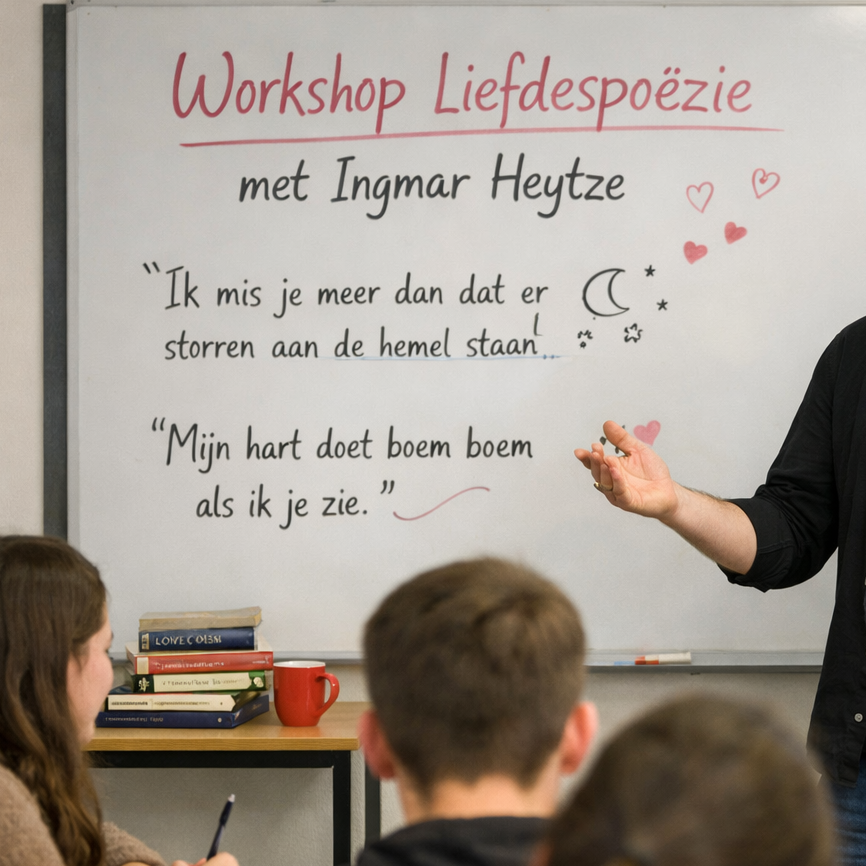 Workshop Liefdespoëzie
met Ingmar Heytze
"Ik mis je meer dan dat er
storren aan de hemel staan!...
"Mijn hart doet boem boem
als ik je zie."